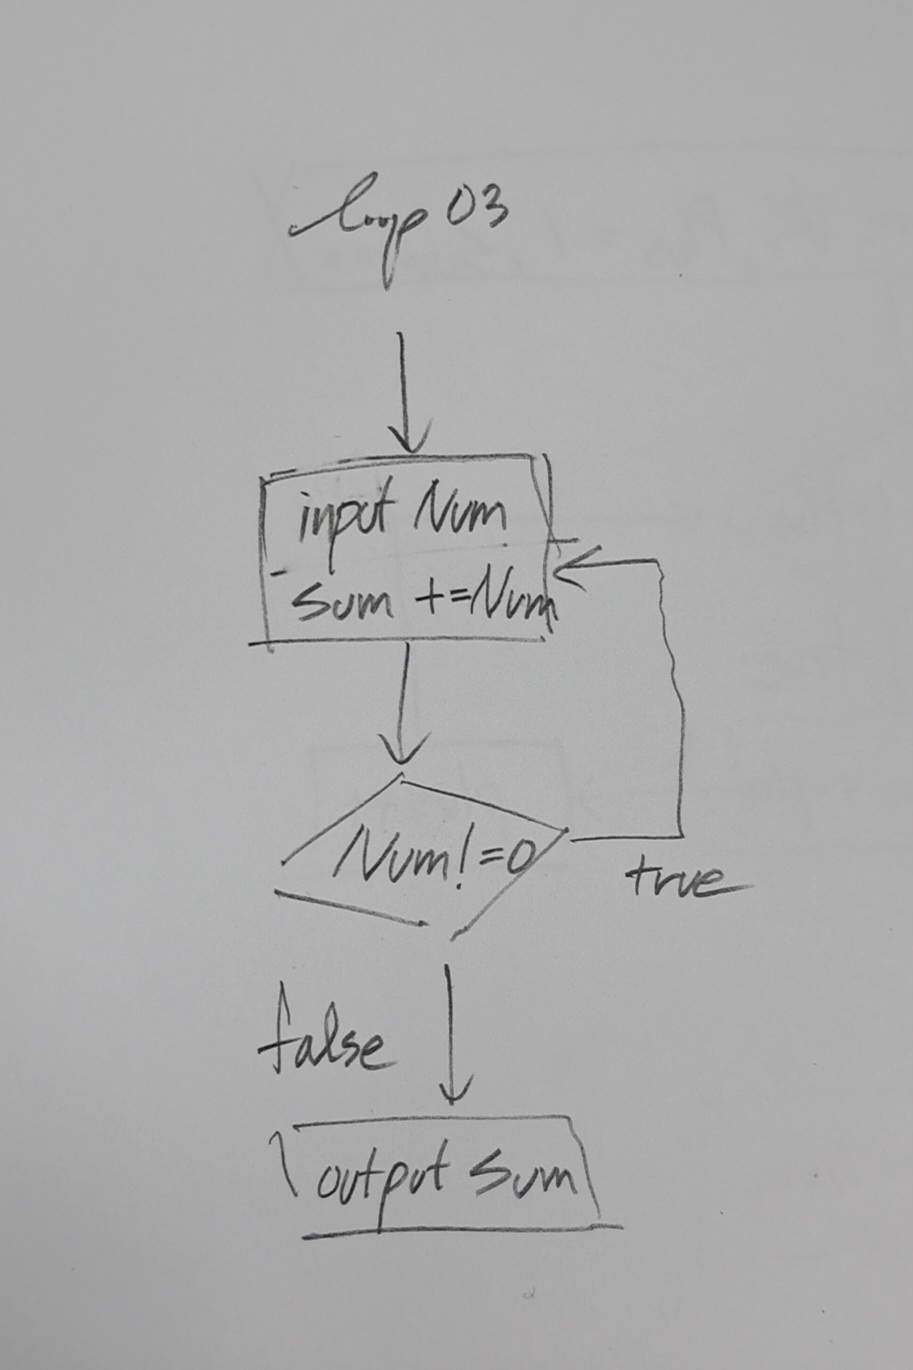 loop 03
input Num
Sum +=Num
Num!=0
true
false
output Sum